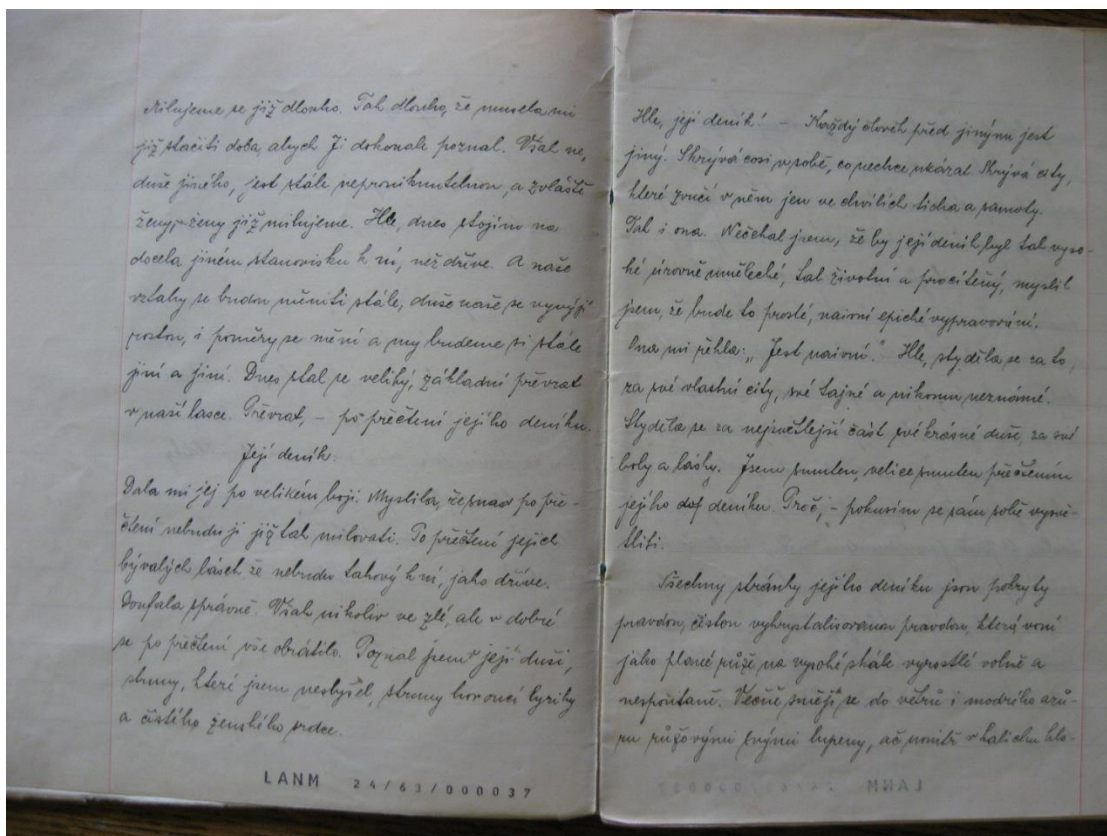 Milujeme se již dlouho. Tak dlouho, že musela mi
již stačiti doba, abych Ji dokonale poznal. Však ne,
duše jiného, jest stále neproniknutelnou, a zvláště
ženy, – ženy již milujeme. Hle, dnes stojím na
docela jiném stanovisku k ní, než dříve. A naše
vztahy se budou měniti stále, duše naše se vyvíjí
rostou, i poměry se mění a my budeme si stále
jiní a jiní. Dnes stal se veliký, základní převrat
v naší lásce. Převrat, – po přečtení jejího deníku.
Její deník.
Dala mi jej po velikém boji. Myslila, že snad po pře-
čtení nebudu ji již tak milovati. Po přečtení jejich
bývalých lásek že nebudu takový k ní, jako dříve.
Doufala správně. Však nikoliv ve zlé, ale v dobré
se po přečtení vše obrátilo. Poznal jsem její duši,
struny, které jsem neslyšel, struny horoucí lyriky
a čistého ženského srdce.
LANM 24/63/000037
Hle, její deník! – Každý člověk před jinými jest
jiný. Skrývá cosi v sobě, co nechce ukázat. Skrývá city,
které zvučí v něm jen ve chvílích ticha a samoty.
Tak i ona. Nečekal jsem, že by její deník byl tak vyso-
ké úrovně umělecké, tak životní a procítěný, myslil
jsem, že bude to prosté, naivní epické vypravování.
Ona mi řekla: „Jest naivní." Hle, styděla se za to,
za své vlastní city, své tajné a nikomu neznámé.
Styděla se za nejsvětlejší část své krásné duše, za své
boly a lásky. Jsem smuten, velice smuten přečtením
jejího deníku. Proč, – pokusím se sám sobě vysvě-
tliti.
Všechny stránky jejího deníku jsou pokryty
pravdou, čistou vykrystalisovanou pravdou, která voní
jako plané růže na vysoké skále vyrostlé volně a
nespoutaně. Věčně smějí se do větrů i modrého azu-
ru růžovými svými lupeny, ač uvnitř v kalichu hlo-